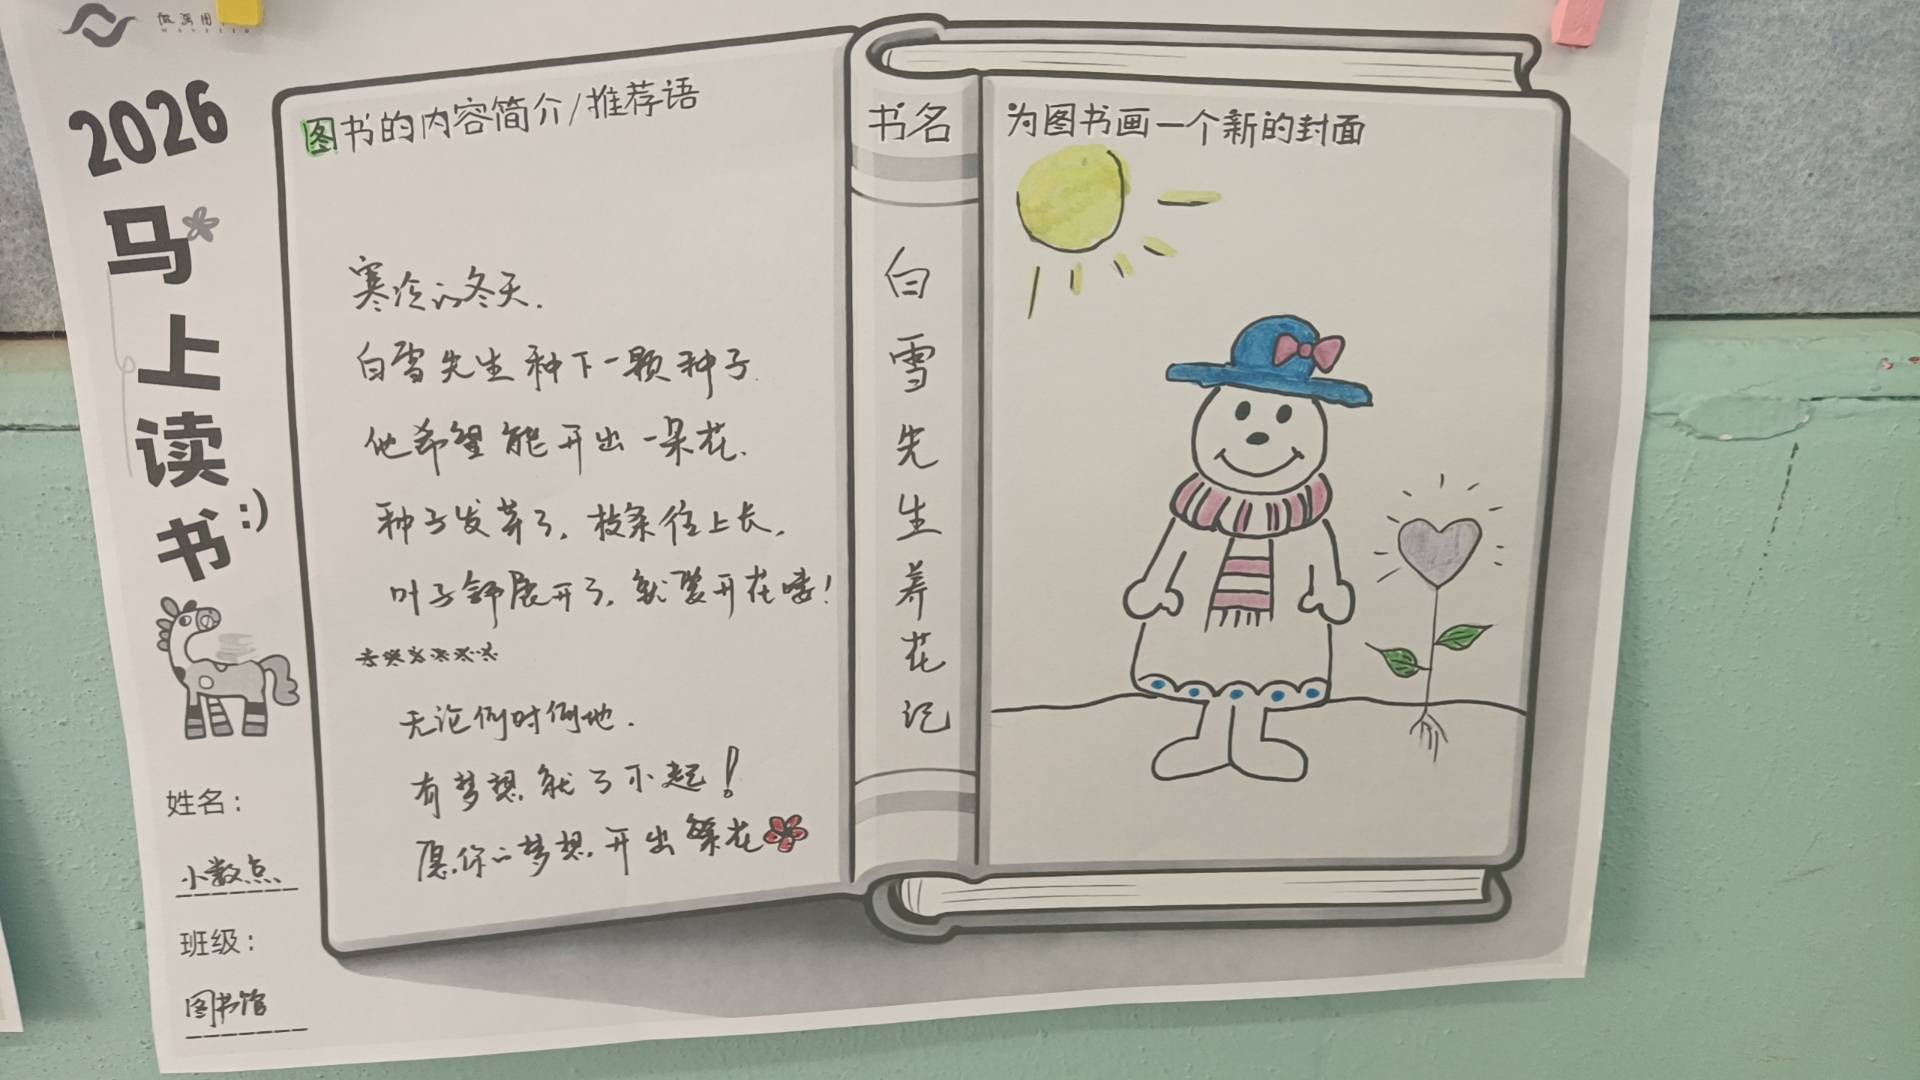 2026
马上读书:)
图书的内容简介/推荐语
寒冷的冬天.
白雪先生种下一颗种子.
他希望能开出一朵花.
种子发芽了,枝条往上长,
叶子舒展开了,就要开花喽!
无论何时何地.
有梦想,就了不起!
愿你的梦想,开出鲜花
书名
白雪先生养花记
为图书画一个新的封面
姓名:
小数点
班级:
图书馆